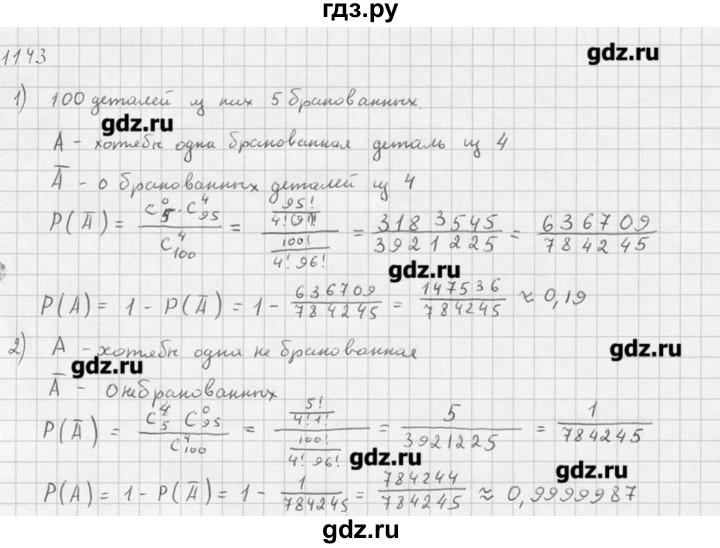 гдз.ру
1143
gdz.ru
1) 100 деталей из них 5 бракованных.
gdz.ru
A - хотябы одна бракованная деталь из 4
Ā - 0 бракованных деталей из 4
P(Ā) = (C_5^0 · C_95^4)/(C_100^4) = (95!/(4! 91!))/(100!/(4! 96!)) = 3183545/3921225 = 636709/784245
gdz.ru
P(A) = 1 - P(Ā) = 1 - 636709/784245 = 147536/784245 ≈ 0,19
2) A - хотябы одна не бракованная
gdz.ru
gdz.ru
Ā - 0 небракованных
P(Ā) = (C_5^4 C_95^0)/(C_100^4) = (5!/(4! 1!))/(100!/(4! 96!)) = 5/3921225 = 1/784245
gdz.ru
gdz.ru
P(A) = 1 - P(Ā) = 1 - 1/784245 = 784244/784245 ≈ 0,9999987
gdz.ru